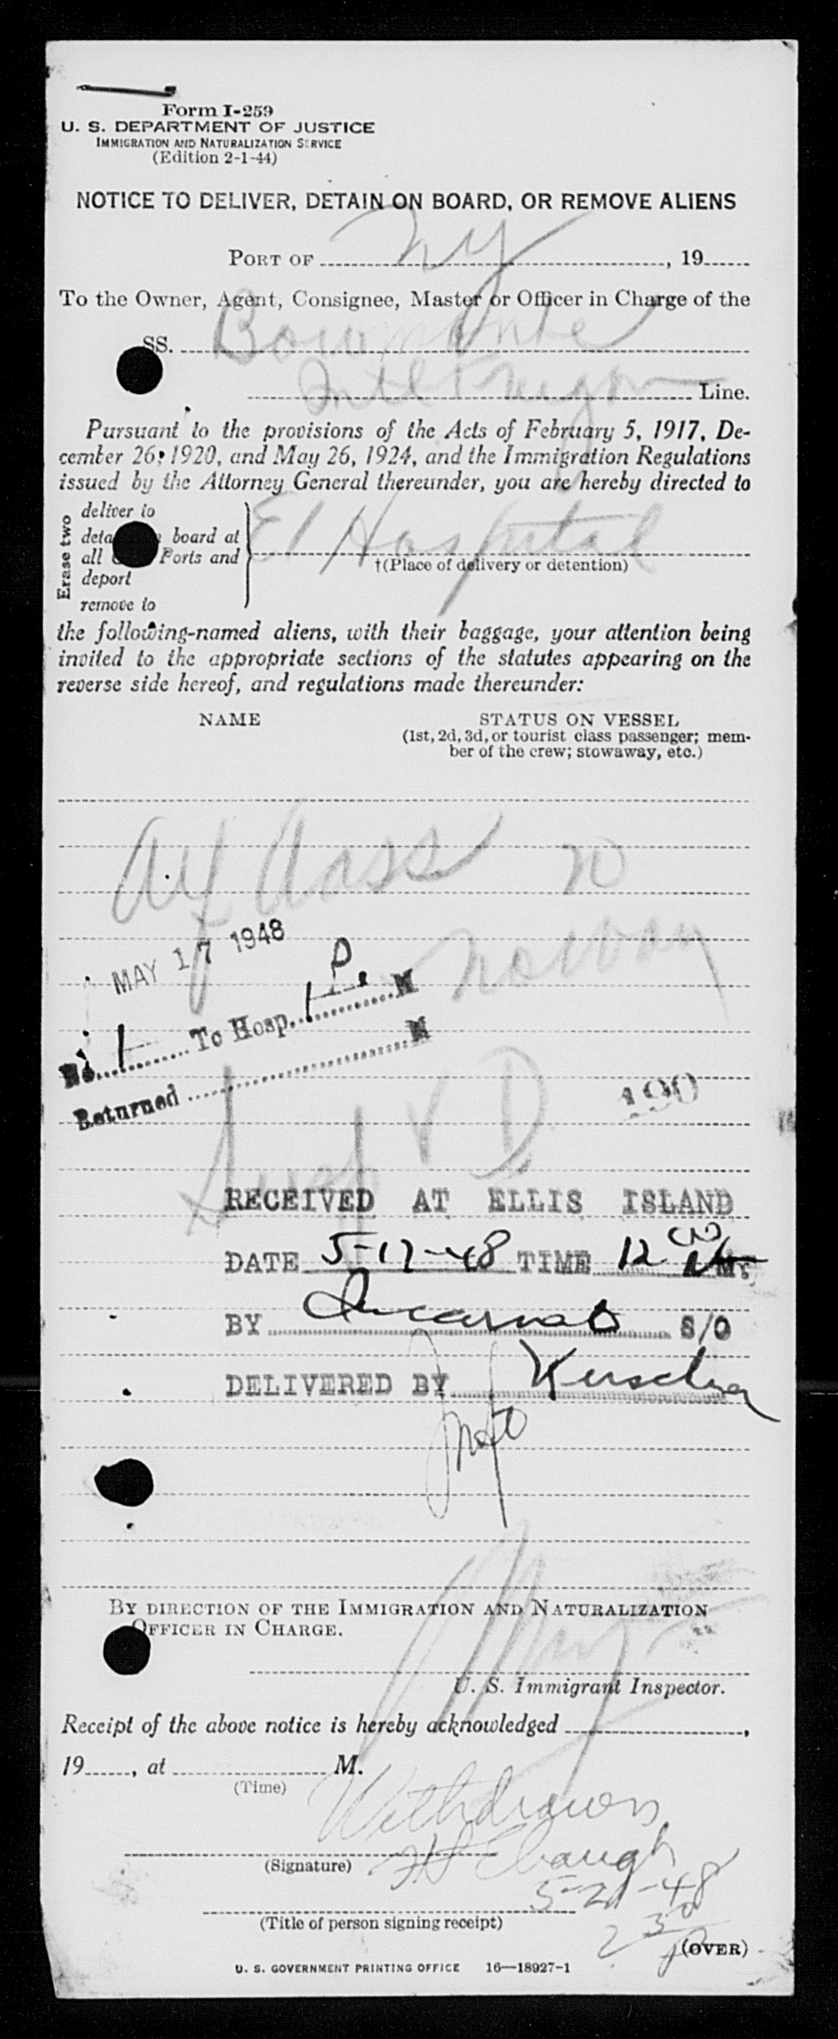 Form I-259
U. S. DEPARTMENT OF JUSTICE
IMMIGRATION AND NATURALIZATION SERVICE
(Edition 2-1-44)
NOTICE TO DELIVER, DETAIN ON BOARD, OR REMOVE ALIENS
PORT OF NY, 19
To the Owner, Agent, Consignee, Master or Officer in Charge of the
SS.
Line.
Pursuant to the provisions of the Acts of February 5, 1917, De-
cember 26, 1920, and May 26, 1924, and the Immigration Regulations
issued by the Attorney General thereunder, you are hereby directed to
Erase two
deliver to
board at
all Ports and
deport
remove to
EI Hospital
†(Place of delivery or detention)
the following-named aliens, with their baggage, your attention being
invited to the appropriate sections of the statutes appearing on the
reverse side hereof, and regulations made thereunder:
NAME STATUS ON VESSEL
(1st, 2d, 3d, or tourist class passenger; mem-
ber of the crew; stowaway, etc.)
Alf Aass
Norway
MAY 17 1948
No. 1 To Hosp. 1 P. M
Returned M
190
Susp V D
RECEIVED AT ELLIS ISLAND
DATE 5-17-48 TIME 12 00 M.
BY S/O
DELIVERED BY
BY DIRECTION OF THE IMMIGRATION AND NATURALIZATION
OFFICER IN CHARGE.
U. S. Immigrant Inspector.
Receipt of the above notice is hereby acknowledged ,
19 , at M.
(Time)
Withdrawn
(Signature)
5-21-48
(Title of person signing receipt)
2 30
(OVER)
U. S. GOVERNMENT PRINTING OFFICE 16—18927-1